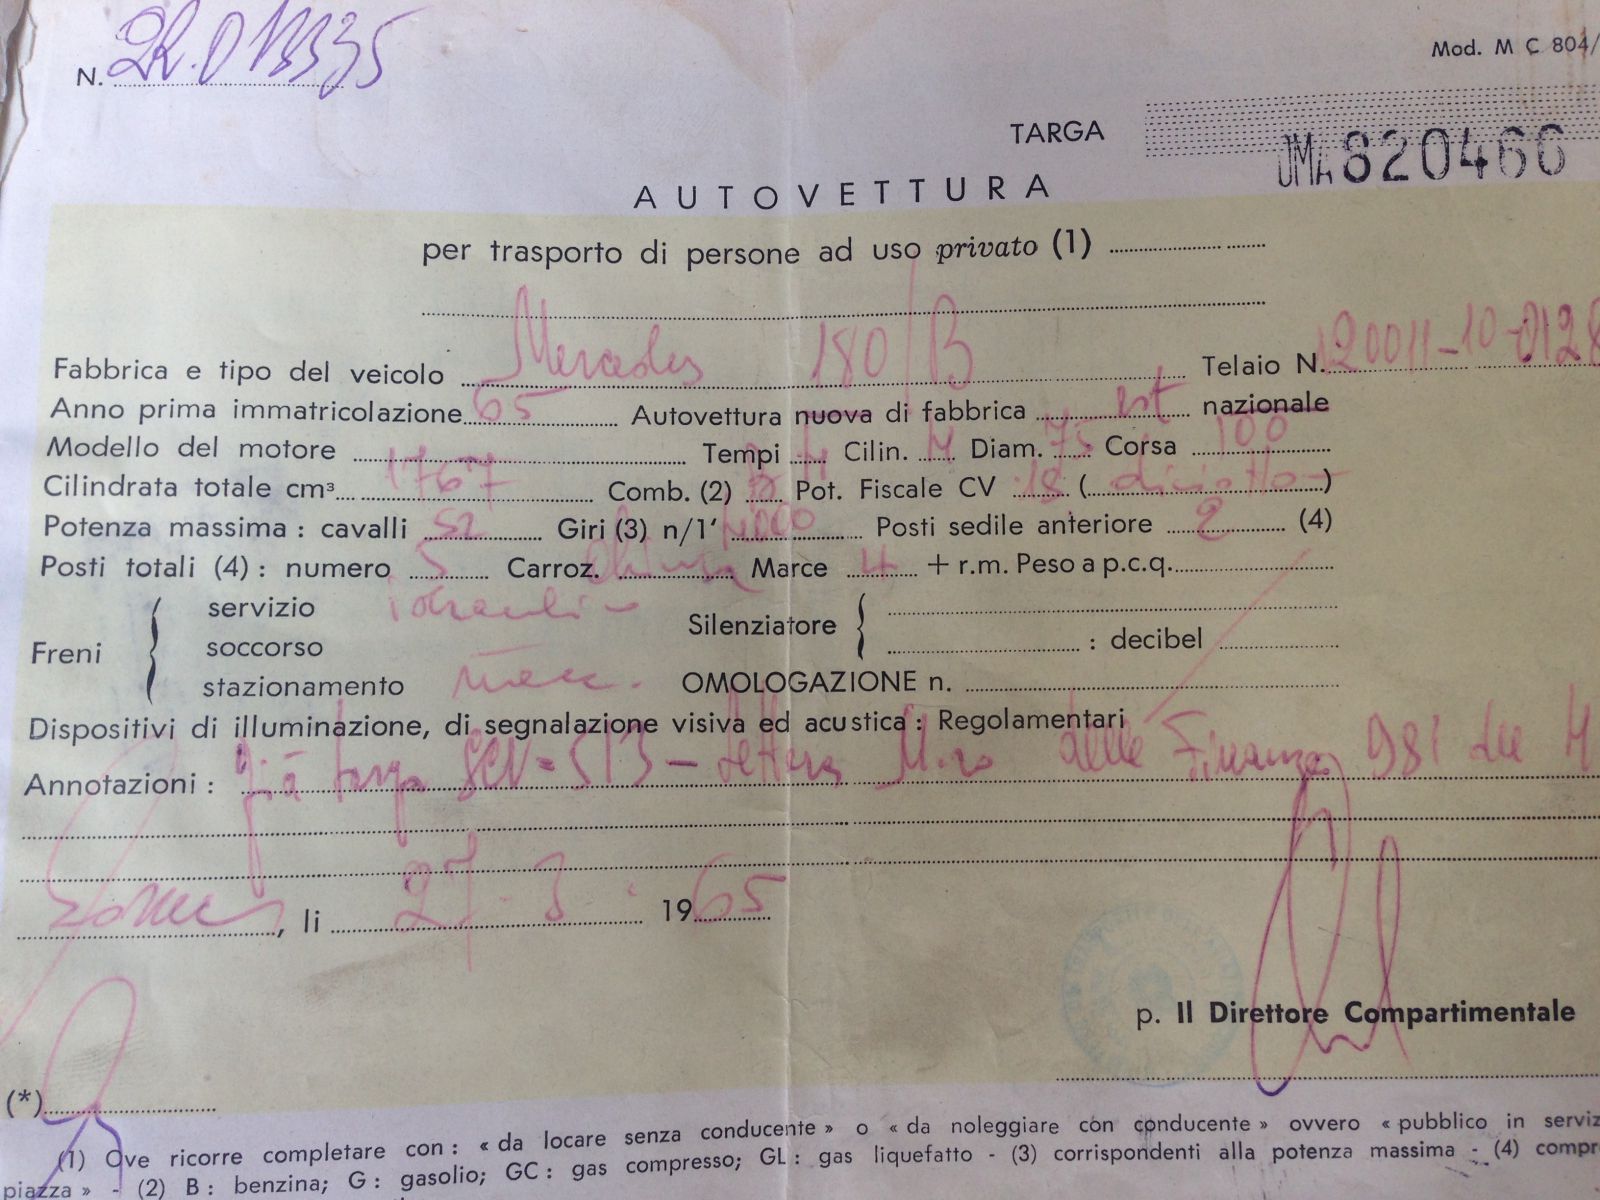 Mod. M C 804/
N.
TARGA ROMA 820466
AUTOVETTURA
per trasporto di persone ad uso privato (1)
Fabbrica e tipo del veicolo Mercedes 180/B Telaio N. 120011-10-0128
Anno prima immatricolazione 65 Autovettura nuova di fabbrica est nazionale
Modello del motore Tempi 4 Cilin. 4 Diam. 75 Corsa 100
Cilindrata totale cm³ 1767 Comb. (2) B Pot. Fiscale CV 18 (diciotto)
Potenza massima : cavalli 52 Giri (3) n/1' 4000 Posti sedile anteriore 2 (4)
Posti totali (4) : numero 5 Carroz. chiusa Marce 4 + r.m. Peso a p.c.q.
Freni
servizio idrauli
soccorso
stazionamento mecc.
Silenziatore : decibel
OMOLOGAZIONE n.
Dispositivi di illuminazione, di segnalazione visiva ed acustica : Regolamentari
Annotazioni : già targa SCV=513 - lettera M.ro delle Finanze 981 del 4
Roma, li 27-3 1965
p. Il Direttore Compartimentale
(*)
(1) Ove ricorre completare con : « da locare senza conducente » o « da noleggiare con conducente » ovvero « pubblico in serviz
piazza » - (2) B : benzina; G : gasolio; GC : gas compresso; GL : gas liquefatto - (3) corrispondenti alla potenza massima - (4) compr